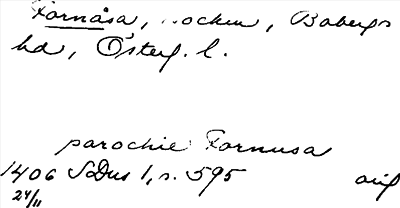 Fornåsa, socken, Bobergs
hd, Österg. l.
parochie Fornusa
1406 SDns 1, s. 595 orig
24/11